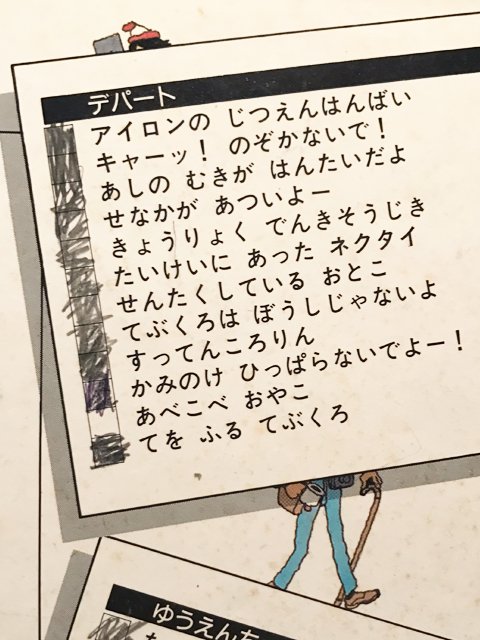 デパート
アイロンの じつえんはんばい
キャーッ! のぞかないで!
あしの むきが はんたいだよ
せなかが あついよー
きょうりょく でんきそうじき
たいけいに あった ネクタイ
せんたくしている おとこ
てぶくろは ぼうしじゃないよ
すってんころりん
かみのけ ひっぱらないでよー!
あべこべ おやこ
てを ふる てぶくろ
ゆうえんち